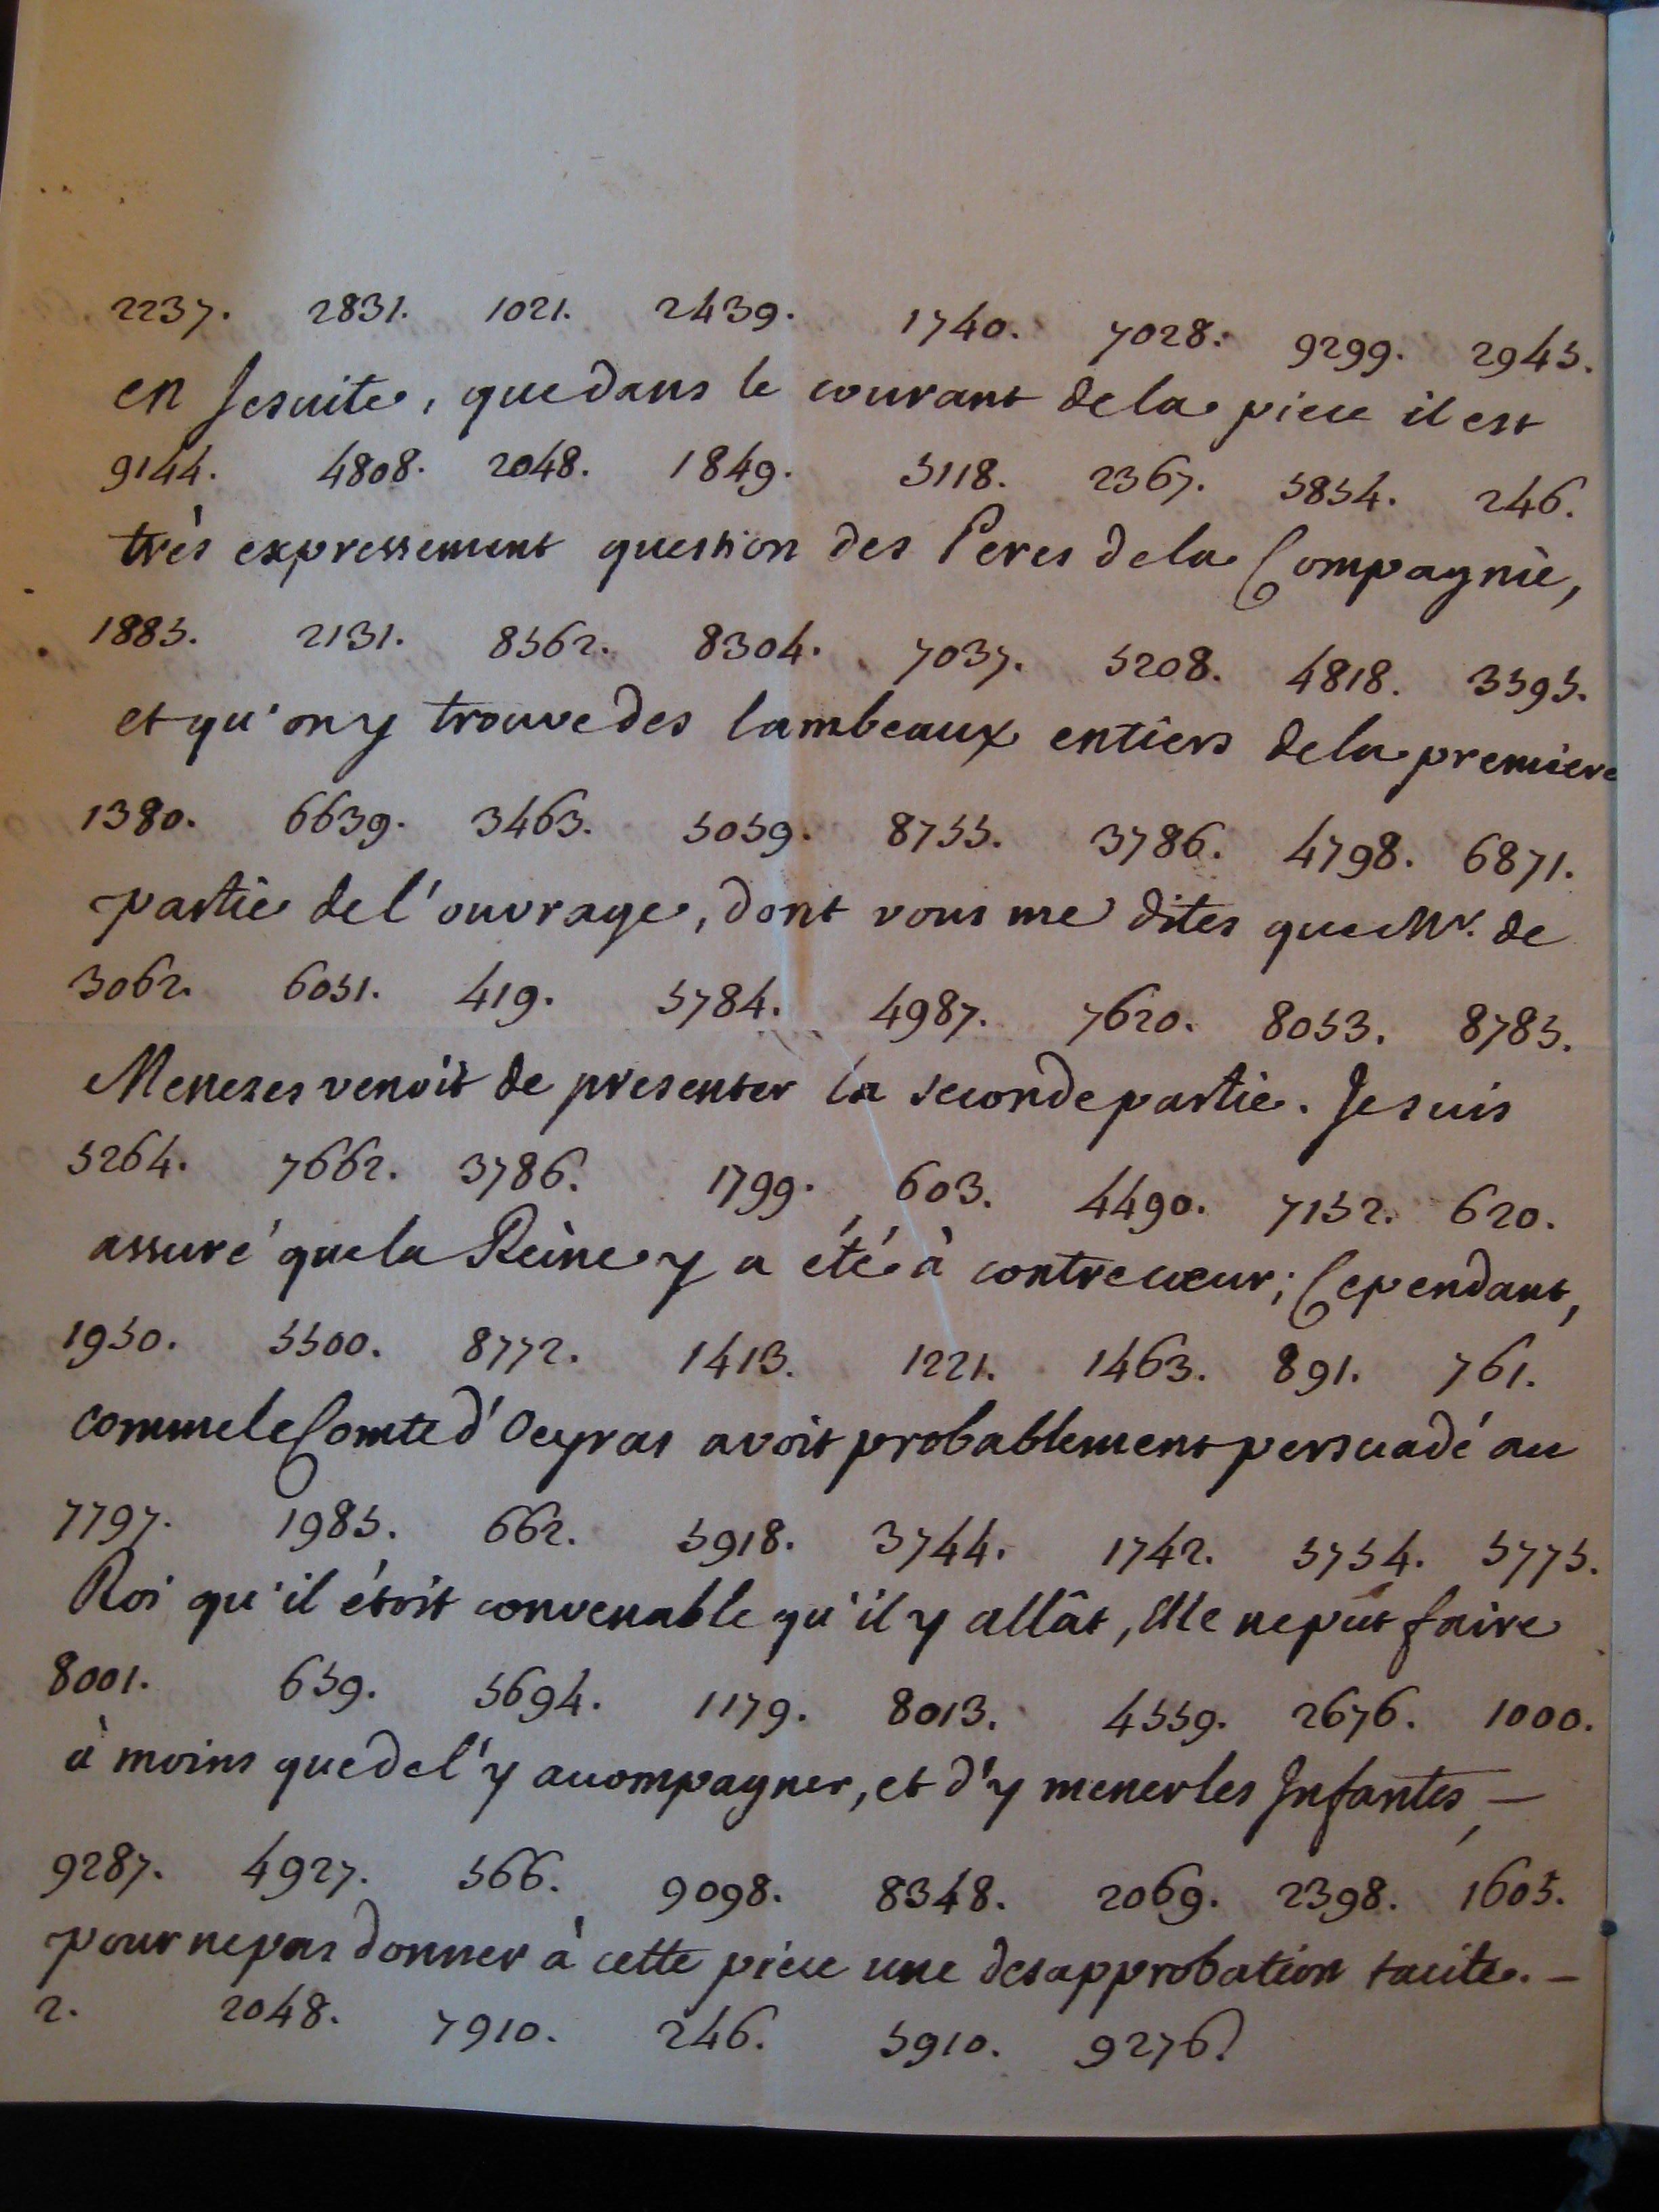 2237. 2831. 1021. 2439. 1740. 7028. 9299. 2945.
en Jesuite, que dans le courant de la piece il est
9144. 4808. 2048. 1849. 5118. 2367. 5854. 246.
très expressement question des Peres de la Compagniè,
1885. 2131. 8562. 8304. 7037. 5208. 4818. 3595.
et qu'on y trouve des lambeaux entiers de la premiere
1380. 6639. 3463. 5059. 8755. 3786. 4798. 6871.
partie de l'ouvrage, dont vous me dites que Mr. de
3062. 6051. 419. 5784. 4987. 7620. 8053. 8785.
Menezes venoit de presenter la seconde partie. Je suis
5264. 7662. 3786. 1799. 603. 4490. 7152. 620.
assuré que la Reine y a été à contrecœur; Cependant,
1950. 5500. 8772. 1413. 1221. 1463. 891. 761.
comme le Comte d'Oeyras avoit probablement persuadé au
7797. 1985. 662. 5918. 3744. 1742. 5754. 5775.
Roi qu'il étoit convenable qu'il y allât, Elle ne pût faire
8001. 659. 5694. 1179. 8013. 4559. 2676. 1000.
à moins que de l'y accompagner, et d'y mener les Infantes, —
9287. 4927. 566. 9098. 8348. 2069. 2398. 1605.
pour ne pas donner à cette pièce une desapprobation tacite. —
2. 2048. 7910. 246. 5910. 9276.